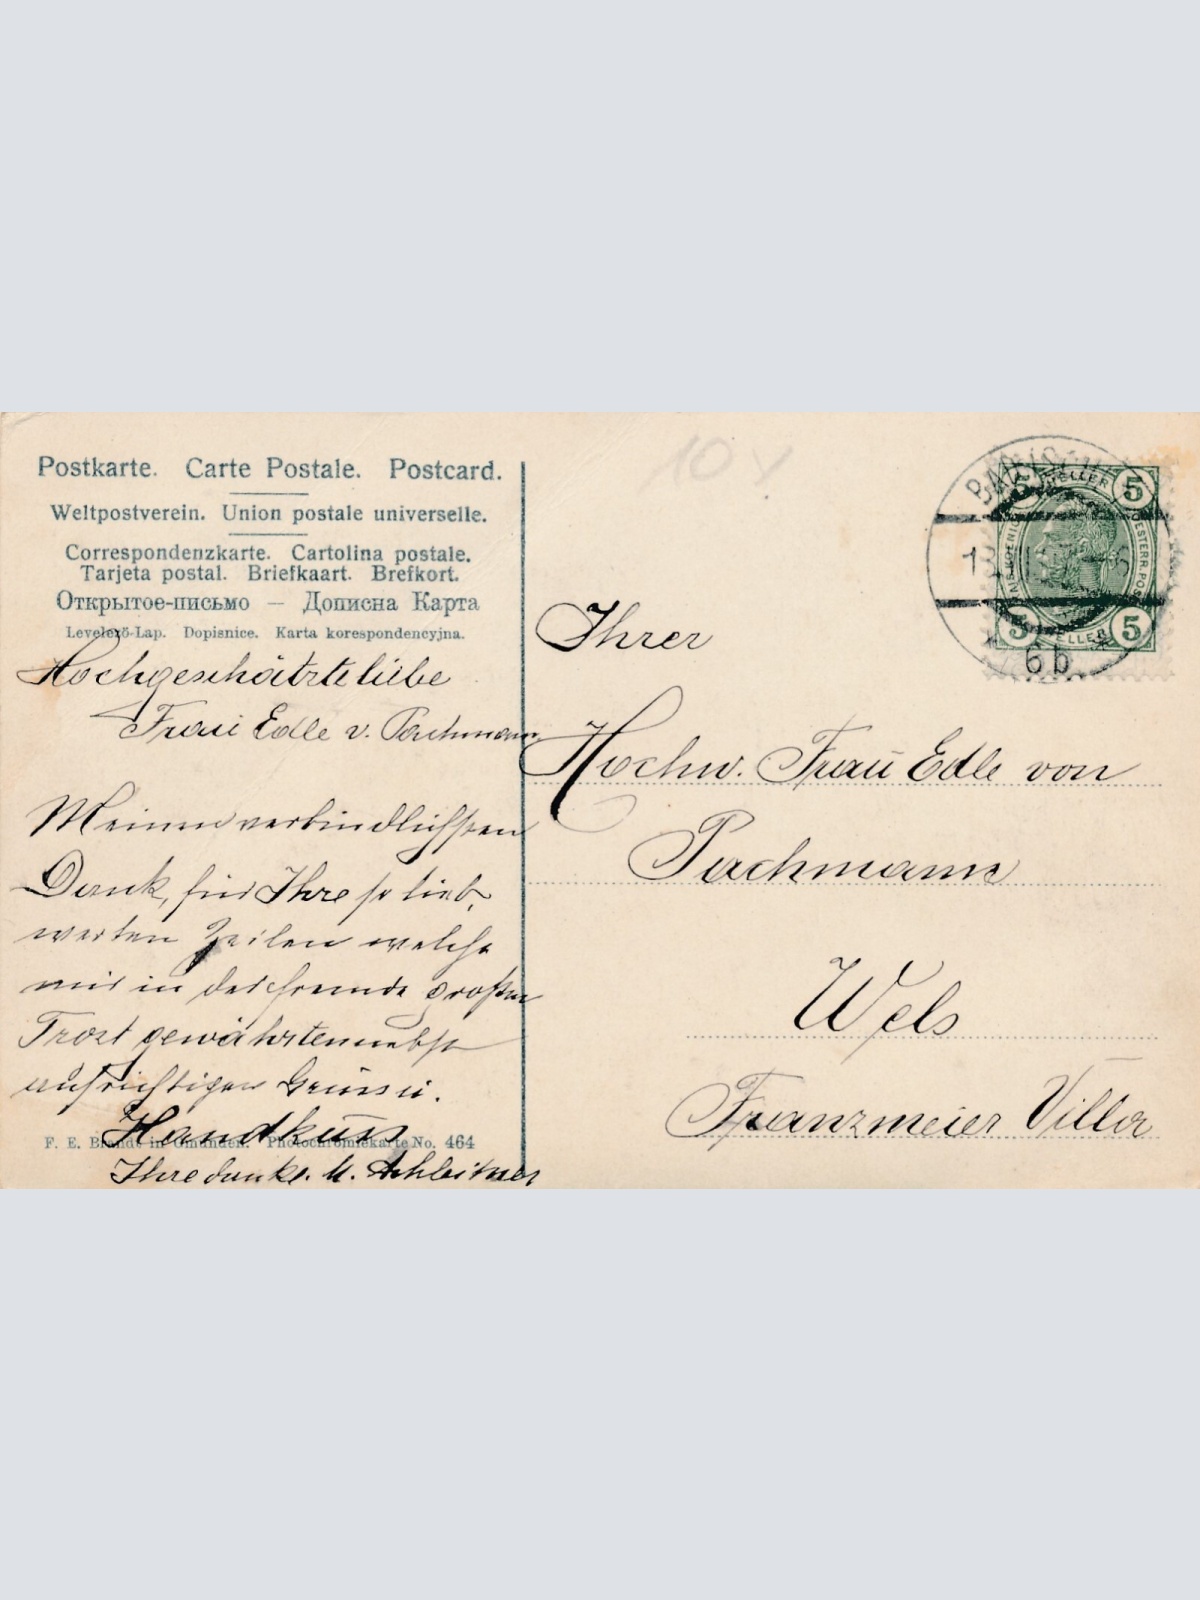 Postkarte. Carte Postale. Postcard.
Weltpostverein. Union postale universelle.
Correspondenzkarte. Cartolina postale.
Tarjeta postal. Briefkaart. Brefkort.
Открытое-письмо — Дописна Карта
Levelező-Lap. Dopisnice. Karta korespondencyjna.
Hochgeschätzte liebe
Frau Edle v. Pachmann
Meinen verbindlichsten
Dank, für Ihre so lieb,
werten Zeilen welche
mir in der Fremde großen
Trost gewährten nebst
aufrichtigen Grüss u.
Handkuss
Ihre dankb. M.
F. E. Brandt in Gmunden. Photochromiekarte No. 464
10
5 HELLER 5
KAIS. KOENIGL. OESTERR. POST
5 HELLER 5
13
6b
Ihrer
Hochw. Frau Edle von
Pachmann
Wels
Franzmeier Villa